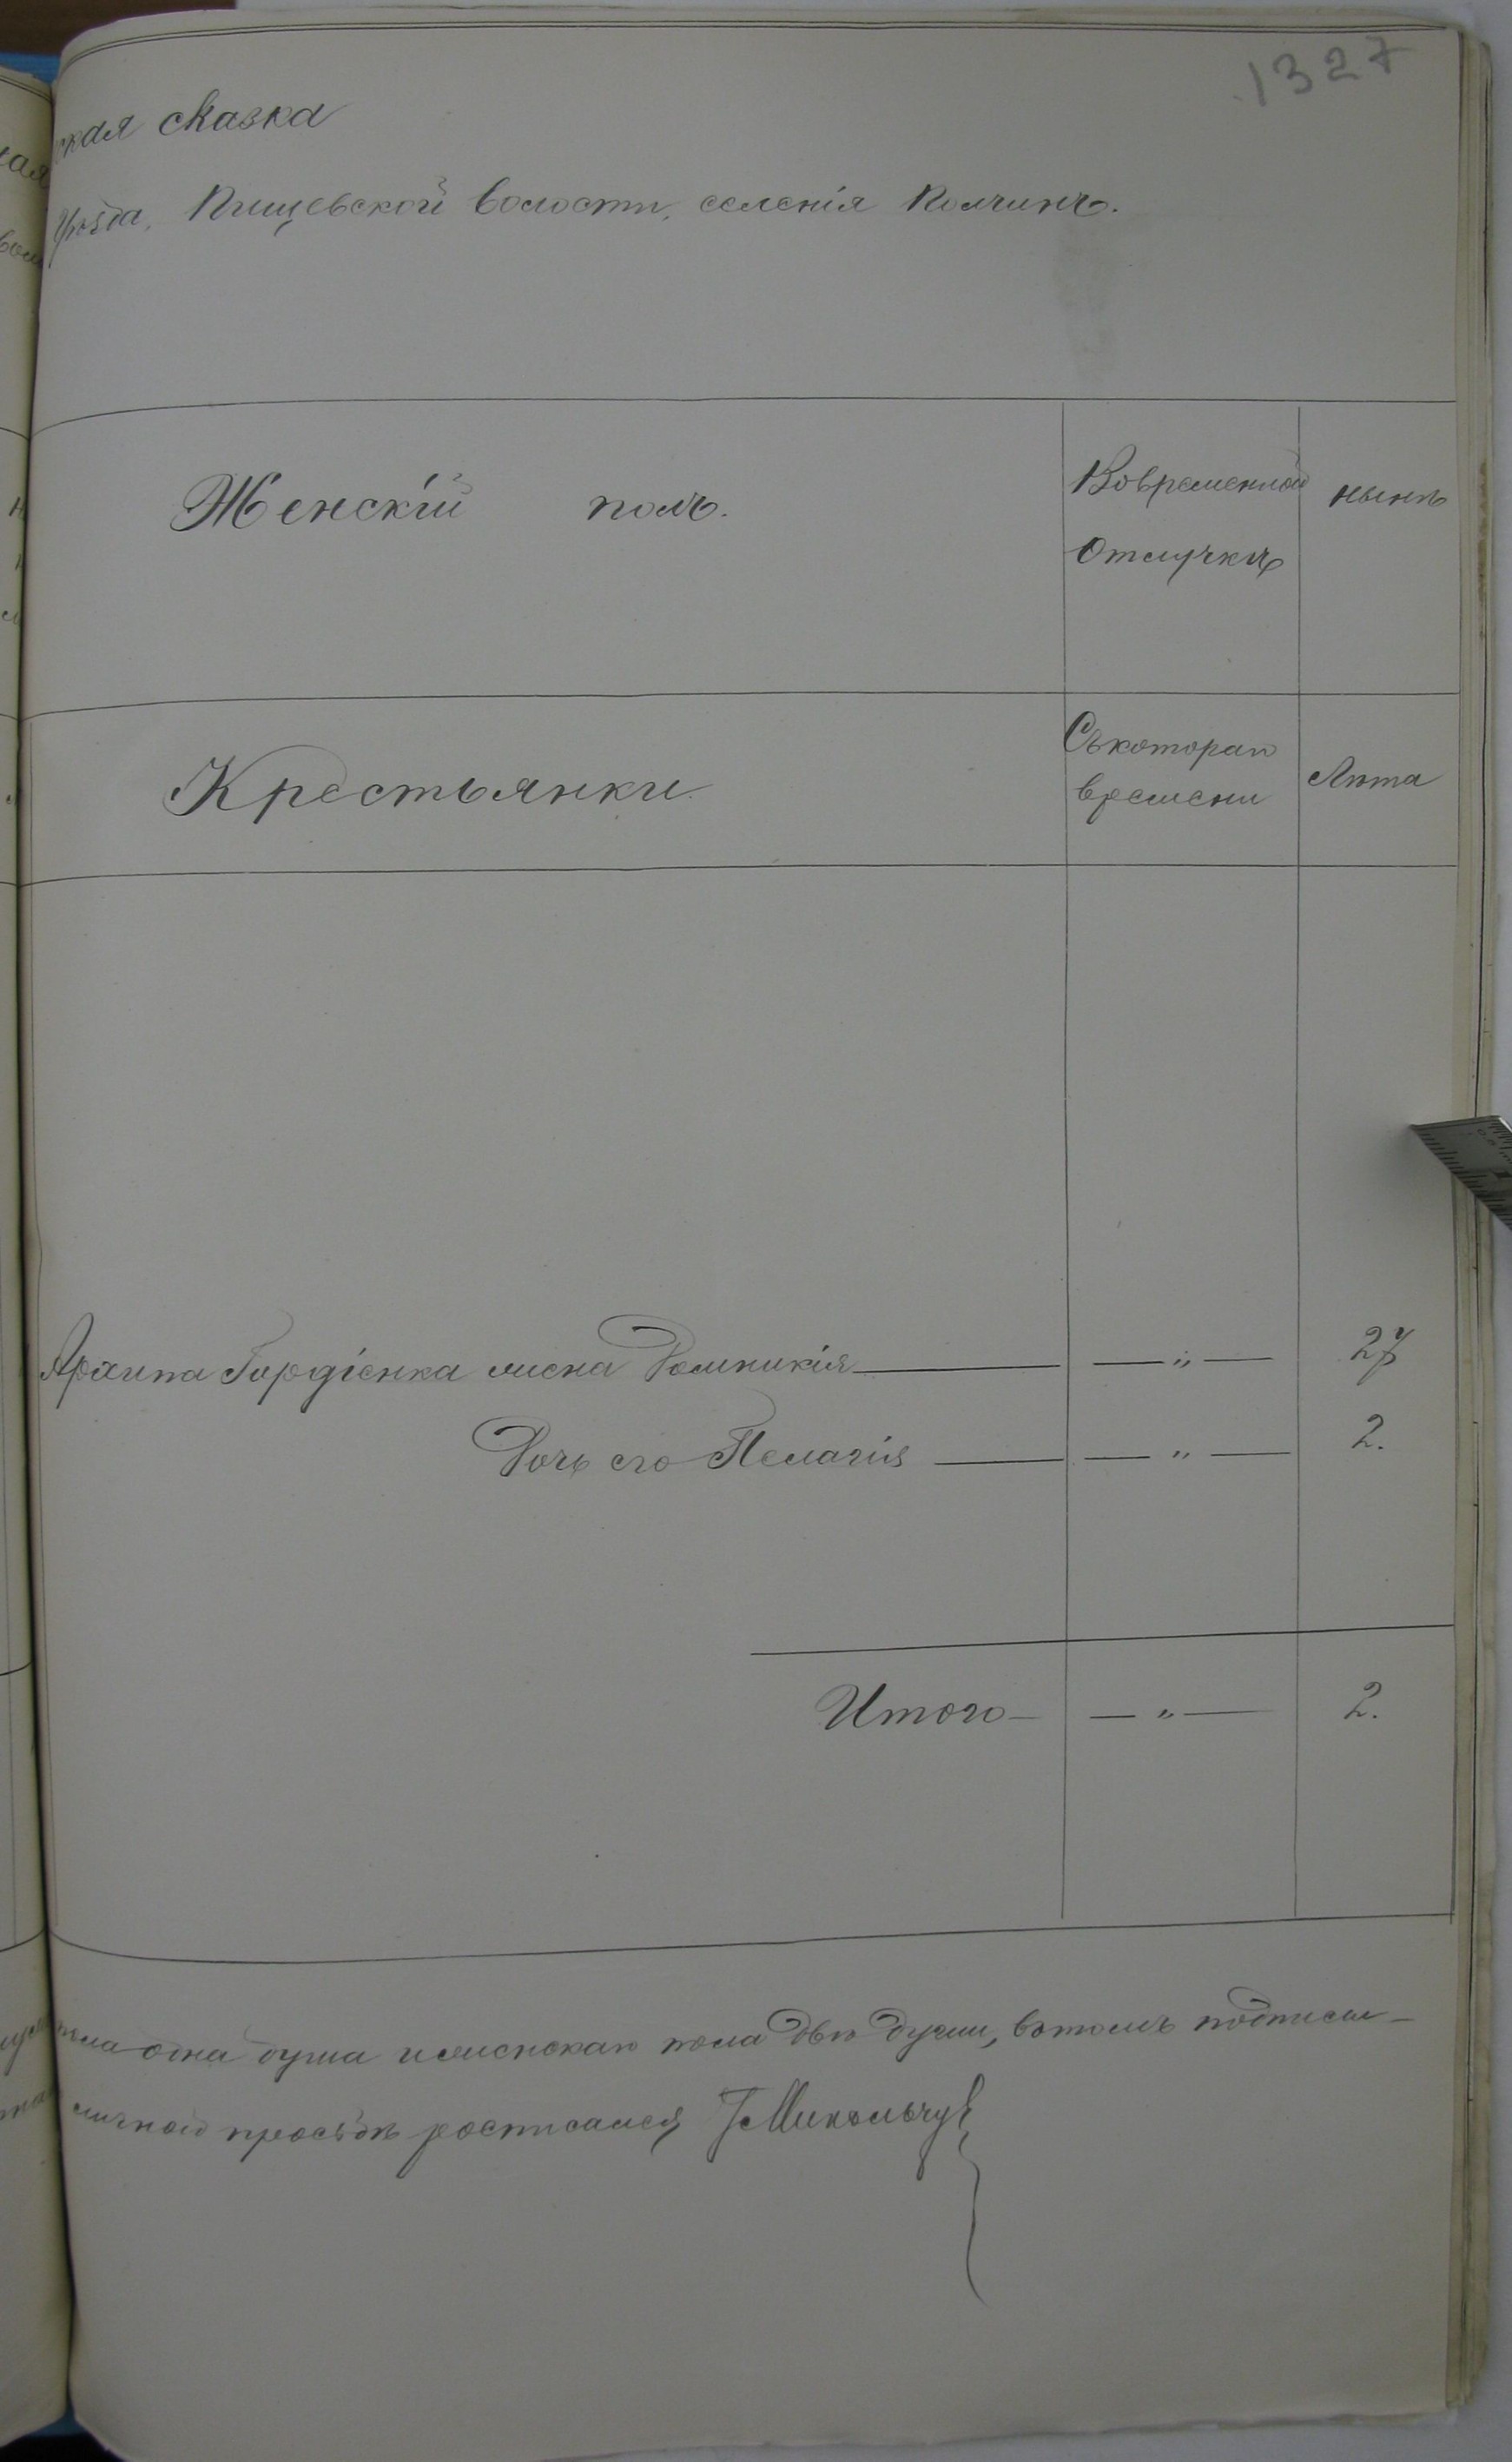 1327
ская сказка
Уѣзда, Пищевской волости, селенія Колчинъ.
Женскій полъ.
Вовременной
отлучкѣ
нынѣ
Крестьянки
Съкотораго
времени
Лѣта
Архипа Гордіенка жена Домникія — „ — 27
Дочь его Пелагія — „ — 2.
Итого — „ — 2.
пола одна душа иженскаго пола двѣ души, вътомъ подписы-
личной просьбѣ росписался